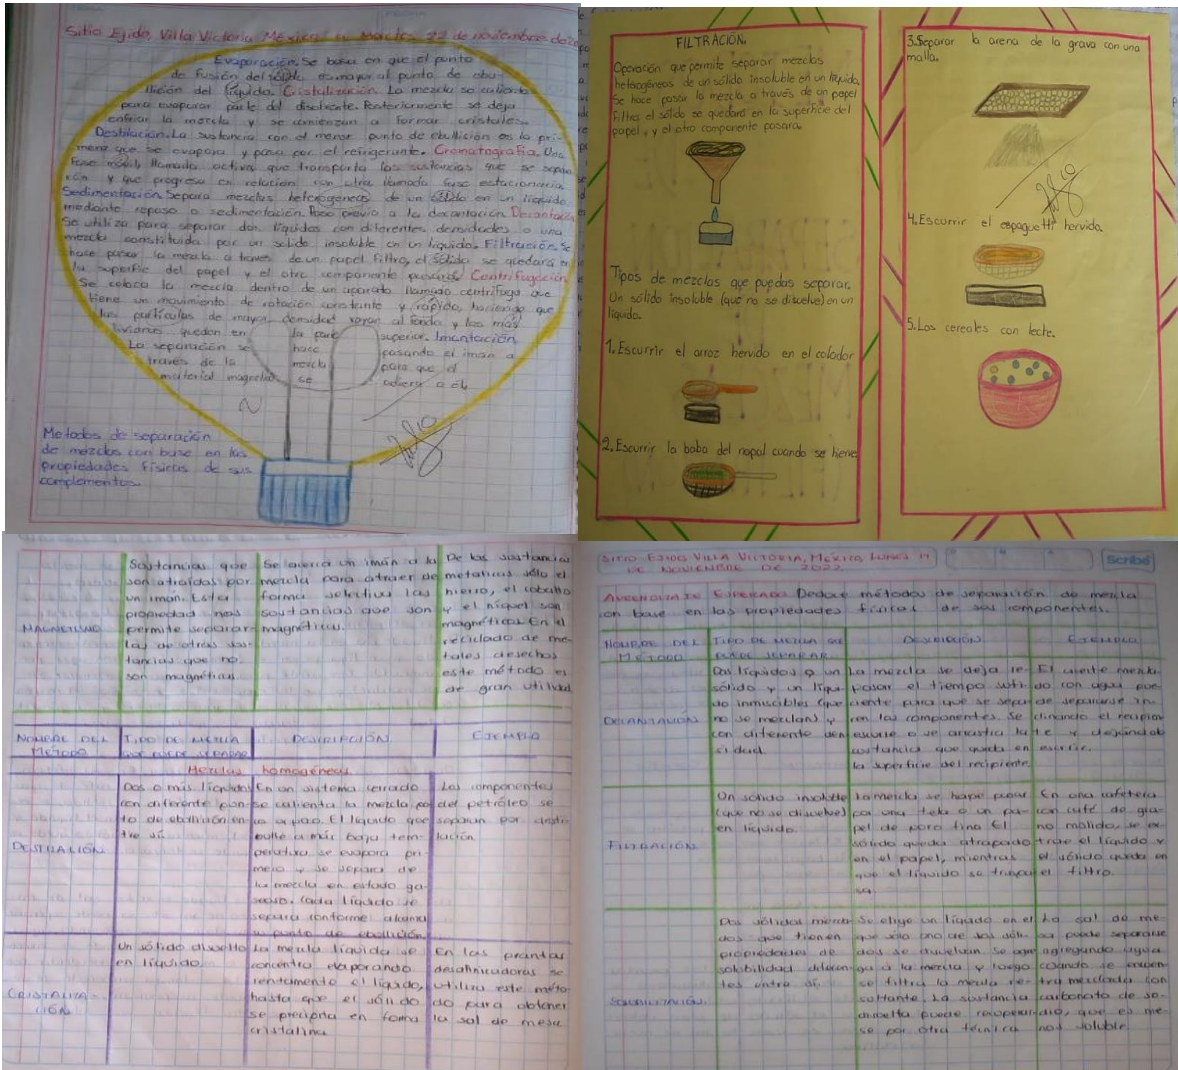 Sitio Ejido, Villa Victoria México a martes 22 de noviembre de
Evaporación. Se basa en que el punto
de fusión del sólido es mayor al punto de ebu-
llición del líquido. Cristalización. La mezcla se calienta
para evaporar parte del disolvente. Posteriormente se deja
enfriar la mezcla y se comienzan a formar cristales.
Destilación. La sustancia con el menor punto de ebullición es la pri-
mera que se evapora y pasa por el refrigerante. Cromatografía. Una
fase móvil, llamada activa que transporta las sustancias que se separa
rán y que progresa en relación con otra llamada fase estacionaria
Sedimentación. Separa mezclas heterogéneas de un sólido en un líquido
mediante reposo o sedimentación. Paso previo a la decantación. Decantación
Se utiliza para separar dos líquidos con diferentes densidades o una
mezcla constituida por un sólido insoluble en un líquido. Filtración. Se
hace pasar la mezcla a través de un papel filtro, el sólido se quedará en
la superficie del papel y el otro componente pasará. Centrifugación
Se coloca la mezcla dentro de un aparado llamado centrifuga que
tiene un movimiento de rotación constante y rápida, haciendo que
las partículas de mayor densidad vayan al fondo y las más
livianas queden en la parte superior. Imantación.
La separación se hace pasando el iman a
través de la mezcla para que el
material magnético se adiera a él
Metodos de separación
de mezclas con base en las
propiedades físicas de sus
complementos.
FILTRACIÓN.
Operación que permite separar mezclas
heterogéneas de un sólido insoluble en un líquido.
Se hace pasar la mezcla a través de un papel
filtro el sólido se quedará en la superficie del
papel, y el otro componente pasará.
Tipos de mezclas que puedas separar.
Un sólido insoluble (que no se disuelve) en un
líquido.
1. Escurrir el arroz hervido en el colador
2. Escurrir la baba del nopal cuando se hierve
3. Separar la arena de la grava con una
malla.
4. Escurrir el espaguetti hervido.
5. Los cereales con leche.
MAGNETISMO
Sustancias que
son atraídas por
un imán. Esta
propiedad nos
permite separar-
las de otras sus-
tancias que no
son magnéticas
Se acerca un imán a la
mezcla para atraer de
forma selectiva las
sustancias que son
magnéticas.
De las sustancias
metálicas sólo el
hierro, el cobalto
y el níquel son
magnéticas. En el
reciclado de me-
tales desechos
este método es
de gran utilidad
NOMBRE DEL
MÉTODO
TIPO DE MEZCLA
QUE PUEDE SEPARAR
DESCRIPCIÓN
EJEMPLO
Mezclas homogéneas
DESTILACIÓN
Dos o más líquidos
con diferente pun-
to de ebullición en
tre sí
En un sistema cerrado
se calienta la mezcla
El líquido que
bulle a más baja tem-
peratura se evapora pri-
mero y se separa de
la mezcla en estado ga-
seoso. Cada líquido se
separa conforme alcanza
su punto de ebullición.
Los componentes
del petróleo se
separan por desti-
lación.
CRISTALIZA-
CIÓN
Un sólido disuelto
en líquido
La mezcla líquida se
concentra evaporando
lentamente el líquido,
hasta que el sólido
se precipita en forma
cristalina
En las plantas
desalinizadoras se
utiliza este méto-
do para obtener
la sal de mesa
SITIO EJIDO VILLA VICTORIA, México, LUNES
DE NOVIEMBRE DE 2022
Scribe
APRENDIZAJE ESPERADO Deduce métodos de separación de mezcla
con base en las propiedades físicas de sus componentes.
NOMBRE DEL
MÉTODO
TIPO DE MEZCLA QUE
PUEDE SEPARAR
DESCRIPCIÓN
EJEMPLO
DECANTACIÓN
Dos líquidos o un
sólido y un líqui-
do inmiscibles (que
no se mezclan) y
con diferente den
sidad.
La mezcla se deja re-
posar el tiempo sufi-
ciente para que se sepa-
ren los componentes. Se
escurre o se arrastra la
sustancia que queda en
la superficie del recipiente
El aceite mezcla-
do con agua pue-
de separarse in-
clinando el recipien
te y dejándolo
escurrir.
FILTRACIÓN
Un sólido insoluble
(que no se disuelve)
en líquido.
La mezcla se hace pasar
por una tela o un pa-
pel de poro fino El
sólido queda atrapado
en el papel, mientras
que el líquido se
En una cafetera
con café de gra-
no molido, se ex
trae el líquido y
el sólido queda en
el filtro.
SOLUBILIZACIÓN.
Dos sólidos mezcla-
dos que tienen
propiedades de
solubilidad diferen-
tes entre sí.
Se elige un líquido en el
que sólo uno de los sóli-
dos se disuelvan. Se agre
ga a la mezcla y luego
se filtra la mezcla re-
sultante. La sustancia
disuelta puede recuperar
se por otra técnica
La sal de me-
sa puede separarse
agregando agua
cuando se encuen-
tra mezclada con
carbonato de so-
dio, que es me-
nos soluble.